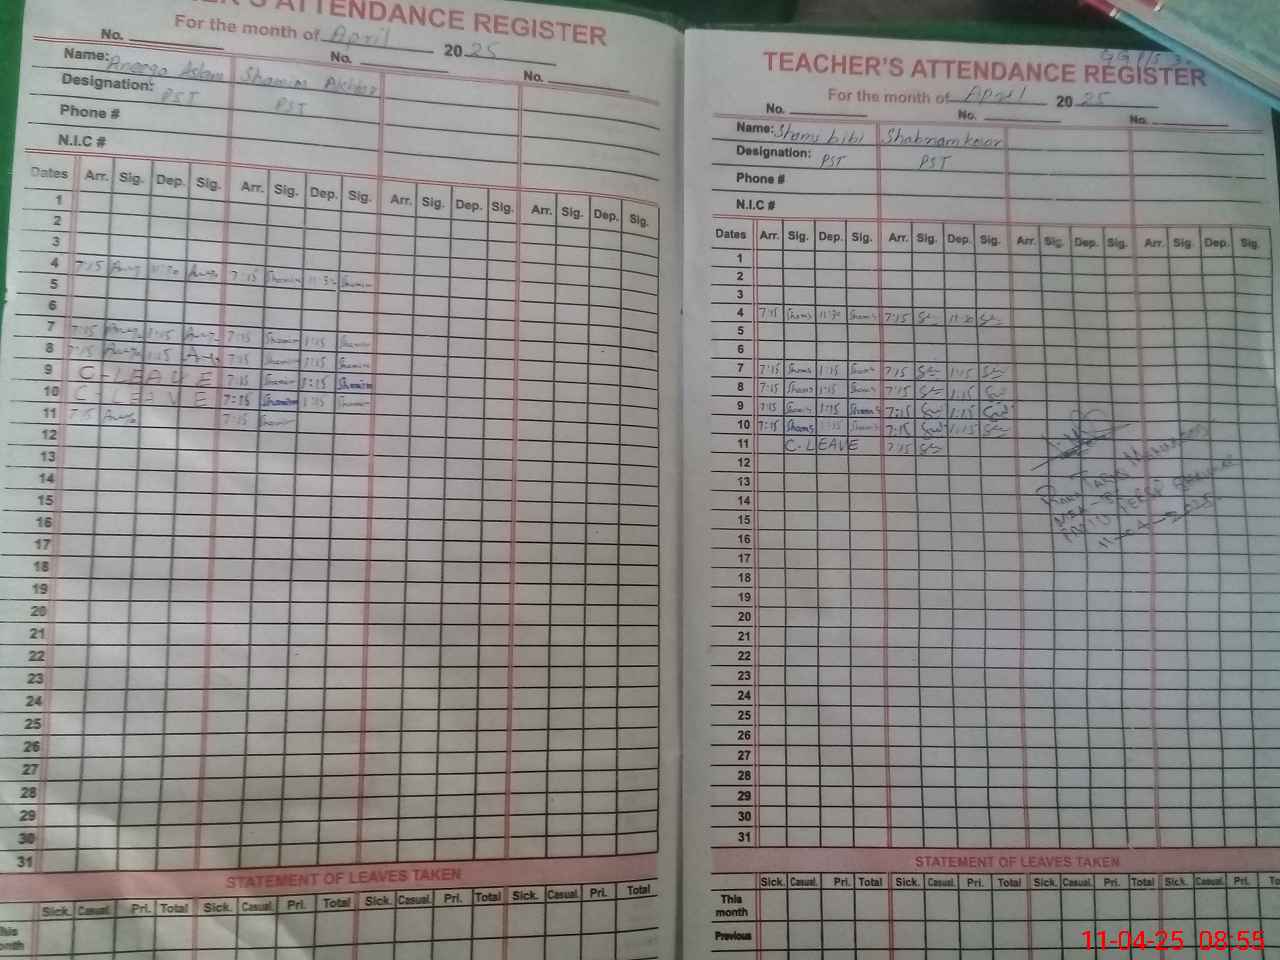 ER'S ATTENDANCE REGISTER
For the month of April 2025
No. No. No.
Name: Aneeqa Aslam Shamim Akhtar
Designation: PST PST
Phone #
N.I.C #
Dates Arr. Sig. Dep. Sig. Arr. Sig. Dep. Sig. Arr. Sig. Dep. Sig. Arr. Sig. Dep. Sig.
1
2
3
4 7:15 11:30 7:15 Shamim 11:30 Shamim
5
6
7 7:15 1:15 7:15 Shamim 1:15 Shamim
8 7:15 1:15 7:15 Shamim 1:15 Shamim
9 C-LEAVE 7:15 Shamim 1:15 Shamim
10 C-LEAVE 7:15 Shamim 1:15 Shamim
11 7:15 7:15 Shamim
12
13
14
15
16
17
18
19
20
21
22
23
24
25
26
27
28
29
30
31
STATEMENT OF LEAVES TAKEN
Sick. Casual. Pri. Total Sick. Casual. Pri. Total Sick. Casual. Pri. Total Sick. Casual. Pri. Total
This month
TEACHER'S ATTENDANCE REGISTER
For the month of April 2025
No. No. No.
Name: Shams bibi Shabnam kousar
Designation: PST PST
Phone #
N.I.C #
Dates Arr. Sig. Dep. Sig. Arr. Sig. Dep. Sig. Arr. Sig. Dep. Sig. Arr. Sig. Dep. Sig.
1
2
3
4 7:15 Shams 11:30 Shams 7:15 11:30
5
6
7 7:15 Shams 1:15 Shams 7:15 1:15
8 7:15 Shams 1:15 Shams 7:15 1:15
9 7:15 Shams 1:15 Shams 7:15 1:15
10 7:15 Shams 1:15 Shams 7:15 1:15
11 C-LEAVE 7:15
12
13
14
15
16
17
18
19
20
21
22
23
24
25
26
27
28
29
30
31
11-4-2025
STATEMENT OF LEAVES TAKEN
Sick. Casual. Pri. Total Sick. Casual. Pri. Total Sick. Casual. Pri. Total Sick. Casual. Pri. To
This month
Previous
11-04-25 08:55